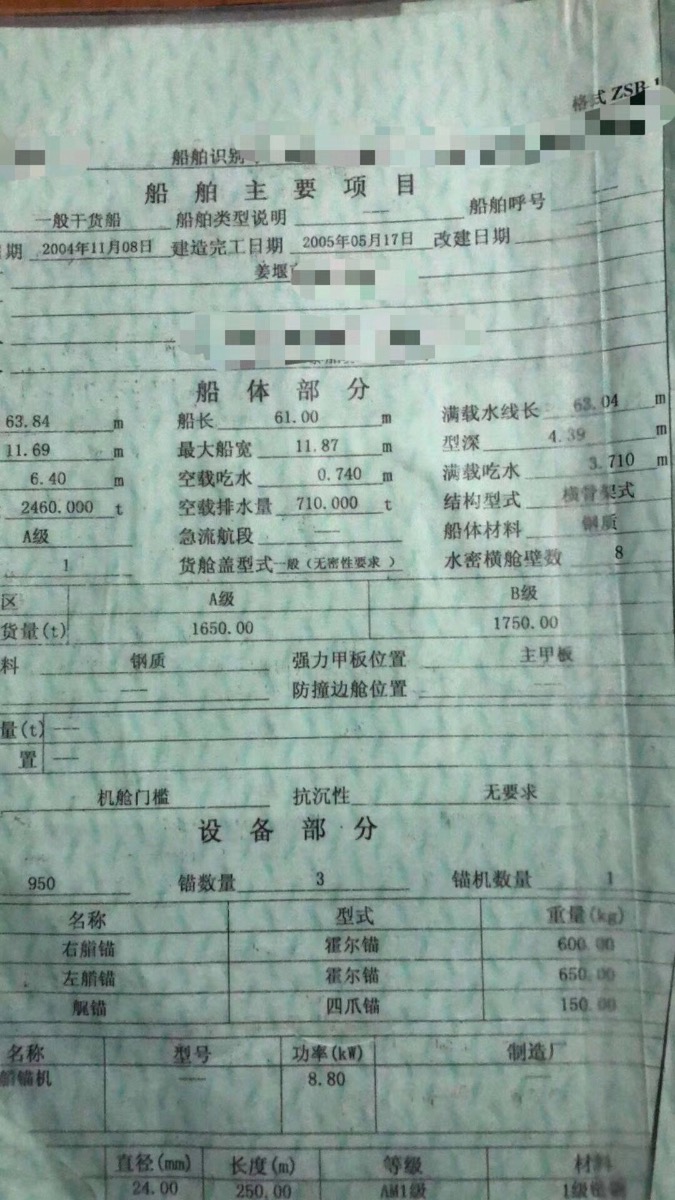 格式 ZSB-1
船舶识别
船舶主要项目
一般干货船 船舶类型说明 — 船舶呼号 —
期 2004年11月08日 建造完工日期 2005年05月17日 改建日期
姜堰
船体部分
63.84 m 船长 61.00 m 满载水线长 63.04 m
11.69 m 最大船宽 11.87 m 型深 4.39 m
6.40 m 空载吃水 0.740 m 满载吃水 3.710 m
2460.000 t 空载排水量 710.000 t 结构型式 横骨架式
A级 急流航段 — 船体材料 钢质
1 货舱盖型式 一般（无密性要求 ） 水密横舱壁数 8
区 A级 B级
货量(t) 1650.00 1750.00
料 钢质 强力甲板位置 主甲板
— 防撞边舱位置
量(t) —
置 —
机舱门槛 抗沉性 无要求
设备部分
950 锚数量 3 锚机数量 1
名称 型式 重量(kg)
右艏锚 霍尔锚 600.00
左艏锚 霍尔锚 650.00
艉锚 四爪锚 150.00
名称 型号 功率(kW) 制造厂
艏锚机 — 8.80 —
直径(mm) 长度(m) 等级 材料
24.00 250.00 AM1级 1级